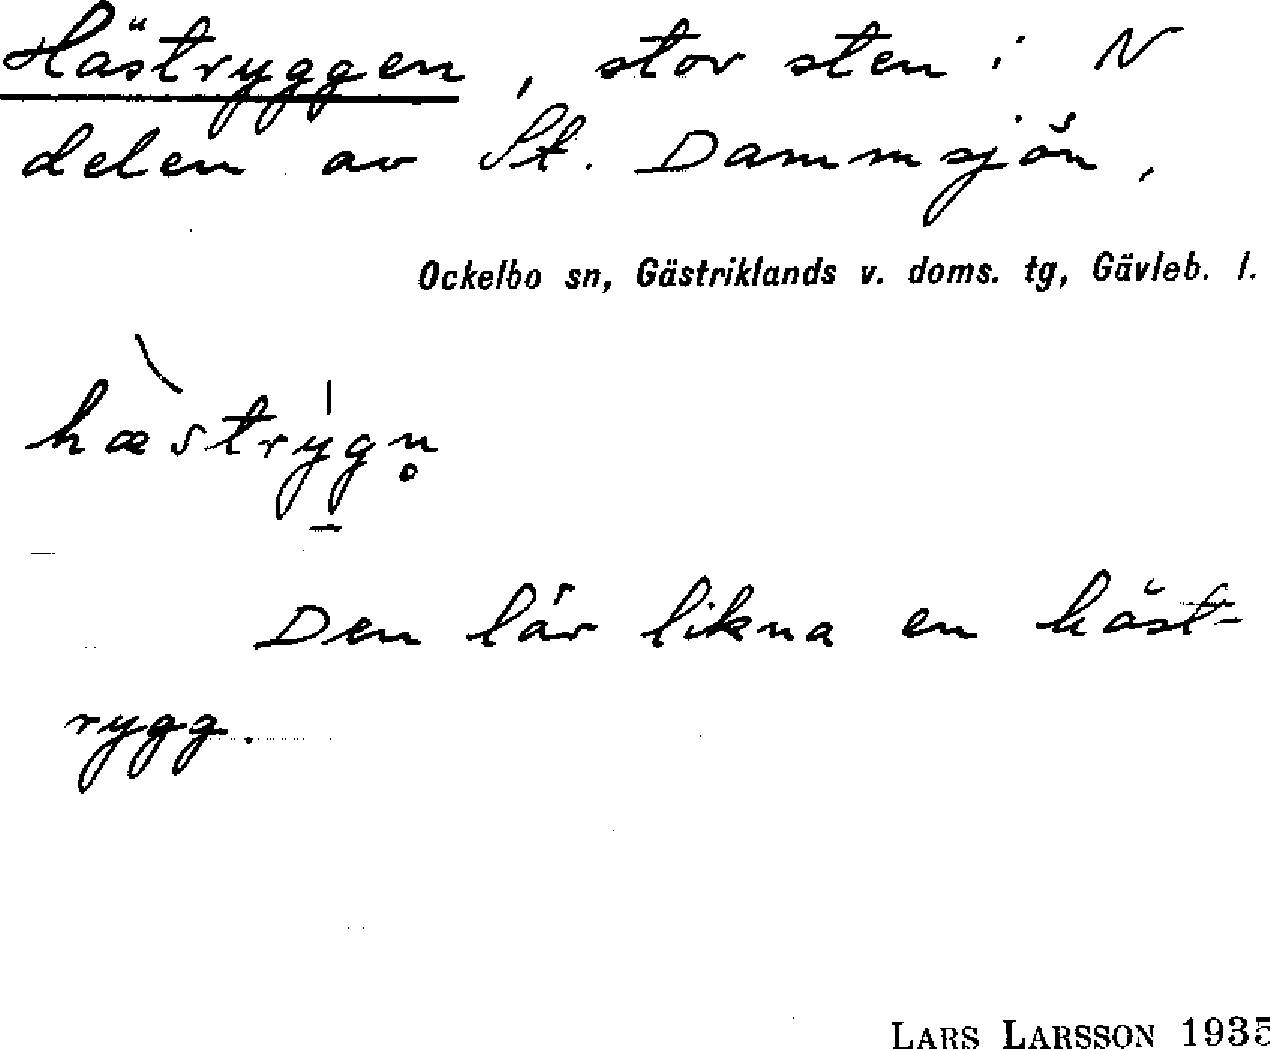 Hästryggen, stor sten i N
delen av St. Dammsjön,
Ockelbo sn, Gästriklands v. doms. tg, Gävleb. l.
hæ̀strýgn̥
Den lär likna en häst-
rygg.
LARS LARSSON 1935